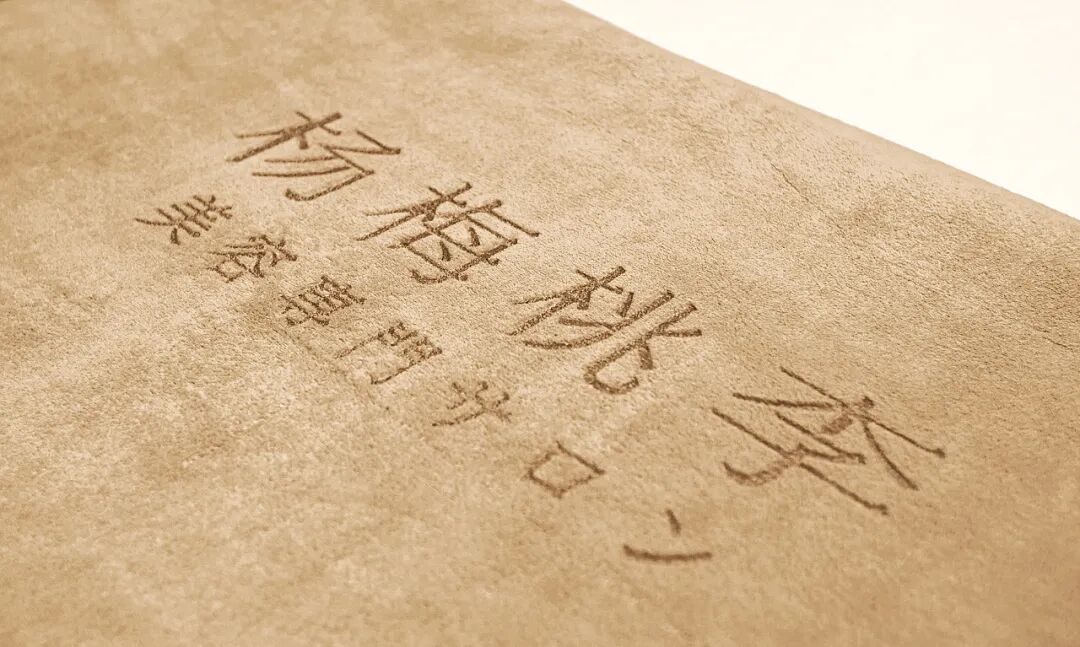 杨梅桃李
美容専門サロン